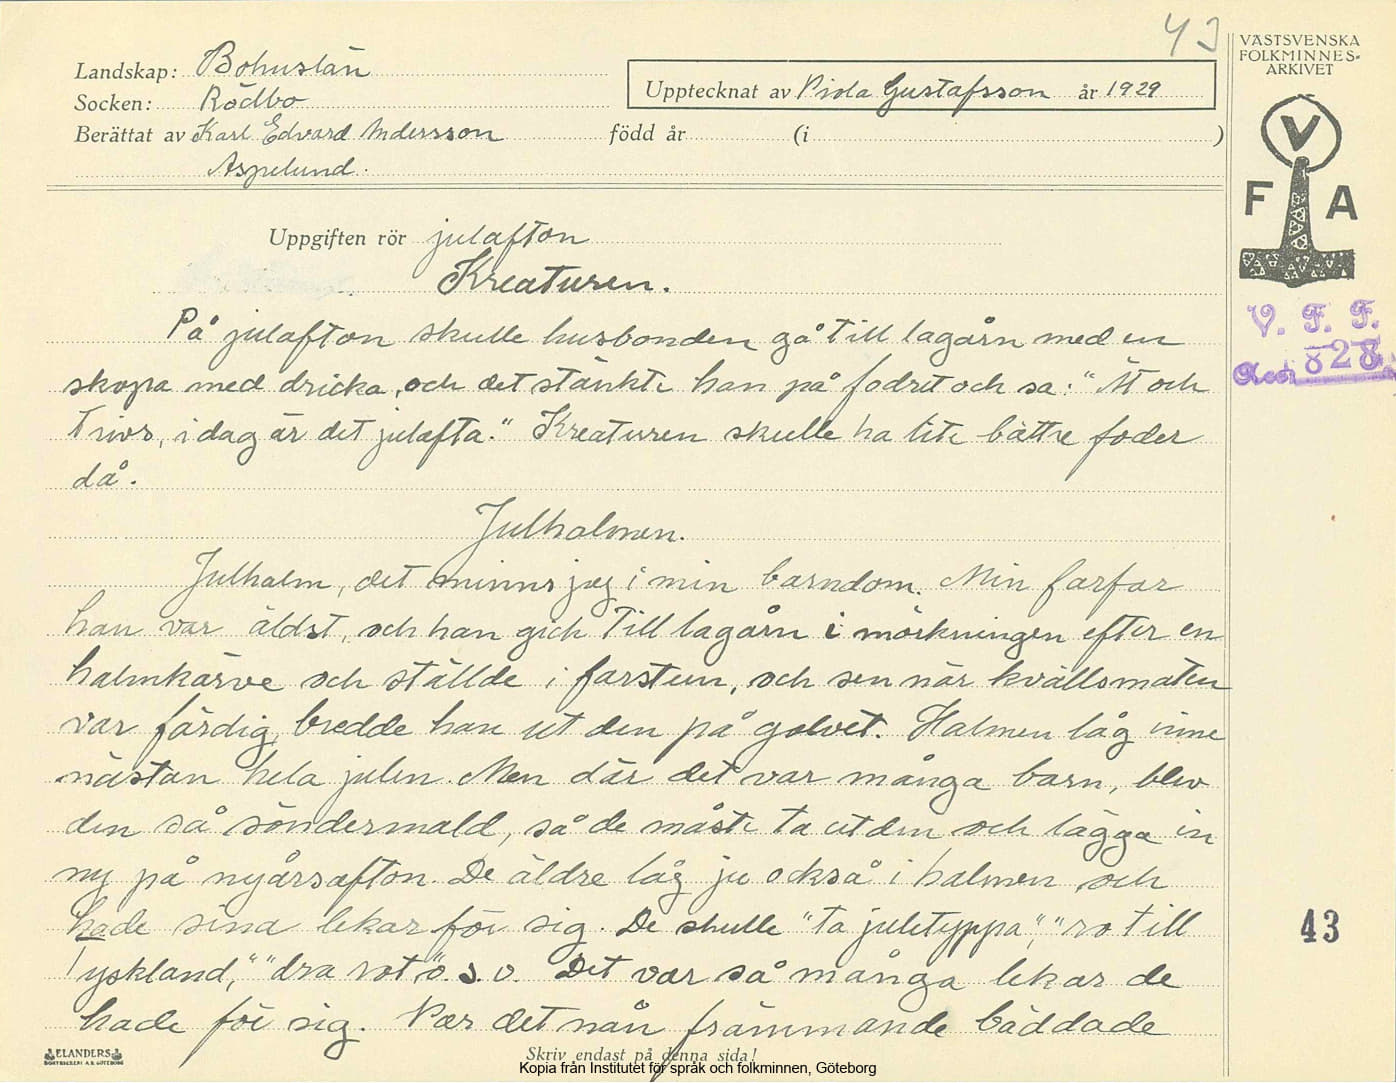 43
VÄSTSVENSKA
FOLKMINNES-
ARKIVET
Landskap: Bohuslän
Socken: Rödbo
Upptecknat av Viola Gustafsson år 1929
Berättat av Karl Edvard Andersson född år (i )
Aspelund.
V
F A
Uppgiften rör julafton
Kreaturen.
V. F. F.
Acc. 828
På julafton skulle husbonden gå till lagårn med en
skopa med dricka, och det stänkte han på fodret och sa: "Ät och
trivs, idag är det julafta." Kreaturen skulle ha lite bättre foder
då.
Julhalmen.
Julhalm, det minns jag i min barndom. Min farfar
han var äldst, och han gick till lagårn i mörkningen efter en
halmkärve och ställde i farstun, och sen när kvällsmaten
var färdig, bredde han ut den på golvet. Halmen låg inne
nästan hela julen. Men där det var många barn, blev
den så söndermald, så de måste ta ut den och lägga in
ny på nyårsafton. De äldre låg ju också i halmen och
hade sina lekar för sig. De skulle "ta juletyppa", "ro till
Tyskland," "dra rot" o. s. v. Det var så många lekar de
hade för sig. Var det nån främmande bäddade
43
ELANDERS
BOKTRYCKERI A.B. GÖTEBORG
Skriv endast på denna sida!
Kopia från Institutet för språk och folkminnen, Göteborg